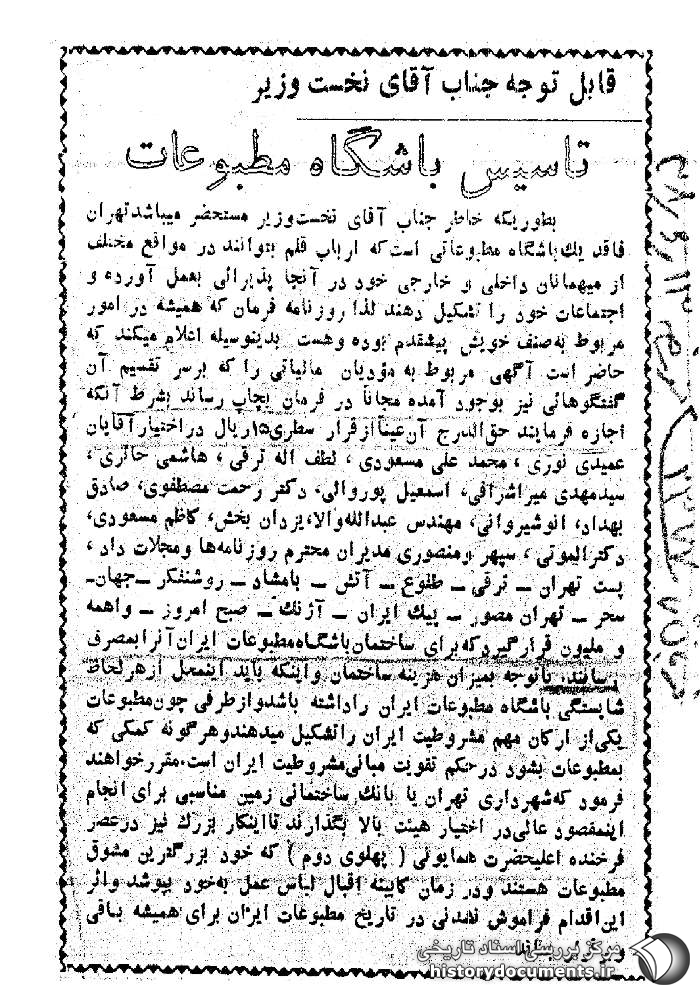 قابل توجه جناب آقای نخست وزیر
تاسیس باشگاه مطبوعات
بطوریکه خاطر جناب آقای نخست‌وزیر مستحضر میباشد تهران
فاقد یك باشگاه مطبوعاتی است که ارباب قلم بتوانند در مواقع مختلف
از میهمانان داخلی و خارجی خود در آنجا پذیرائی بعمل آورده و
اجتماعات خود را تشکیل دهند لذا روزنامه فرمان که همیشه در امور
مربوط به‌صنف خویش پیشقدم بوده و هست بدینوسیله اعلام میکند که
حاضر است آگهی مربوط به مؤدیان مالیاتی را که برسر تقسیم آن
گفتگوهائی نیز بوجود آمده مجاناً در فرمان بچاپ رساند بشرط آنکه
اجازه فرمایند حق‌الدرج آن عیناً از قرار سطری ۱۵ ریال در اختیار آقایان
عمیدی نوری ، محمد علی مسعودی ، لطف اله ترقی ، هاشمی حائری ،
سیدمهدی میراشرافی، اسمعیل پوروالی، دکتر رحمت مصطفوی، صادق
بهداد، انوشیروانی، مهندس عبدالله‌والا، یزدان بخش، کاظم مسعودی،
دکترالموتی ، سپهر ومنصوری مدیران محترم روزنامه‌ها ومجلات داد ،
پست تهران – ترقی – طلوع – آتش – بامشاد – روشنفکر – جهان–
سحر – تهران مصور – پیك ایران – آژنك – صبح امروز – واهمه
و ملیون قرار گیرد که برای ساختمان باشگاه مطبوعات ایران آنرا بمصرف
رسانند. باتوجه بمیزان هزینه ساختمان واینکه باید اینمحل از هر لحاظ
شایستگی باشگاه مطبوعات ایران را داشته باشد واز طرفی چون مطبوعات
یکی از ارکان مهم مشروطیت ایران را تشکیل میدهند وهر گونه کمکی که
بمطبوعات بشود در حکم تقویت مبانی مشروطیت ایران است، مقرر خواهند
فرمود که شهرداری تهران یا بانك ساختمانی زمین مناسبی برای انجام
اینمقصود عالی در اختیار هیئت بالا بگذارند تا اینکار بزرك نیز در عصر
فرخنده اعلیحضرت همایونی ( پهلوی دوم ) که خود بزرگترین مشوق
مطبوعات هستند ودر زمان کابینه اقبال لباس عمل به‌خود بپوشد واثر
این اقدام فراموش نشدنی در تاریخ مطبوعات ایران برای همیشه باقی
مرکز بررسی اسناد تاریخی
historydocuments.ir